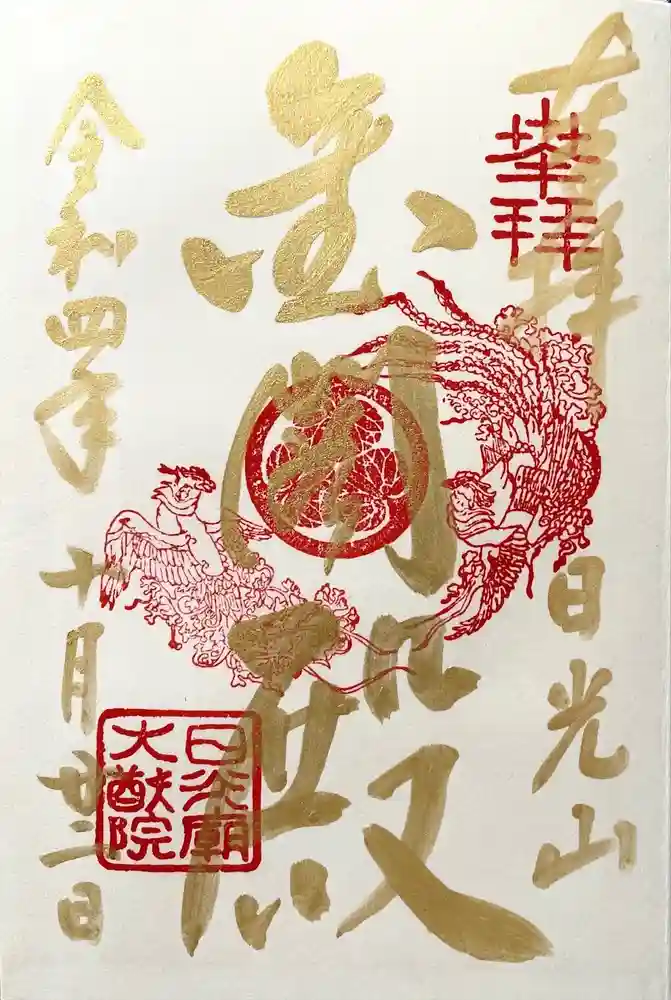 奉拝
奉拝
日光山
金閣殿
日光廟
大猷院
令和四年十月廿二日